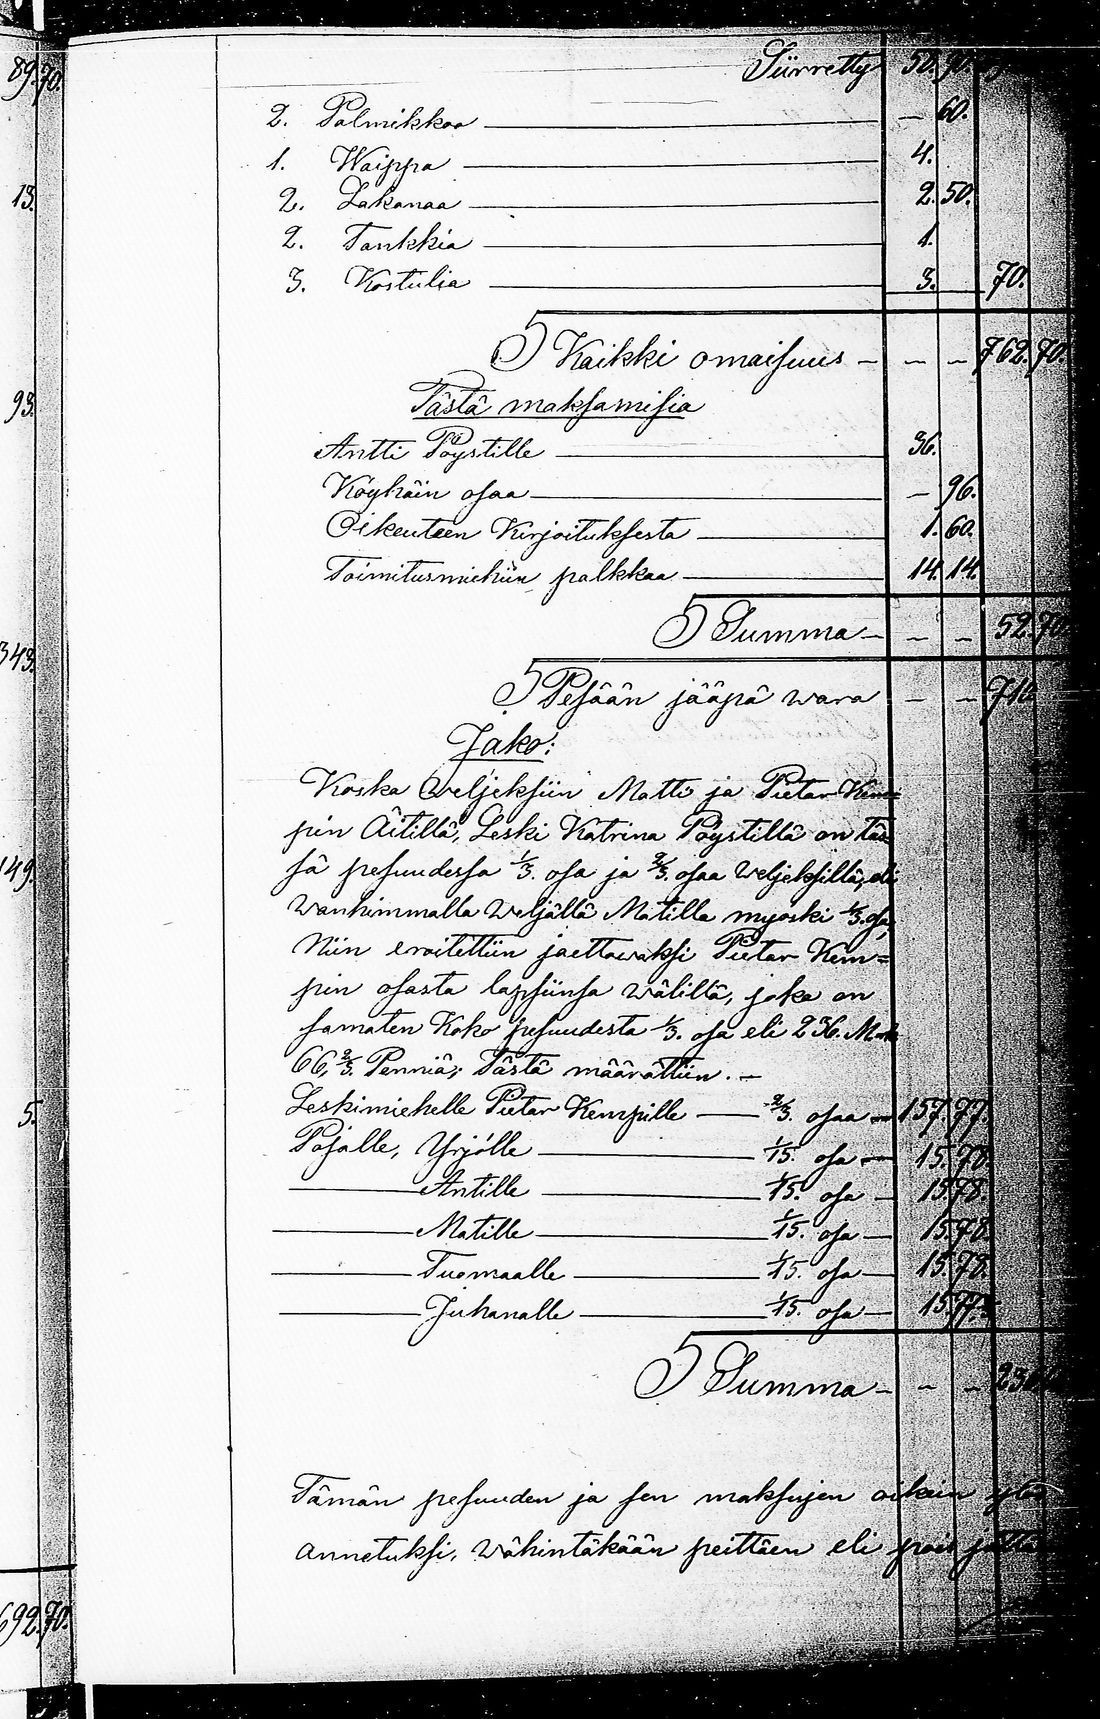 89. 70.
13.
93.
343.
149.
5.
692. 70.
Siirretty
2. Palmikkoa — 60.
1. Waippa 4.
2. Lakanaa 2. 50.
2. Tankkia 1.
3. Kostulia 3. 70.
S Kaikki omaisuus — — — 762. 70.
Tästä maksamisia
Antti Pöystille 36.
Köyhäin osaa — 96.
Oikeuteen Kirjoituksesta 1. 60.
Toimitusmiehiin palkkaa 14. 14.
S Summa — — — 52. 70.
S Pesään jääpä wara — — —
Jako:
Koska weljeksiin Matti ja Pietar Kem
pin Äitillä, Leski Katrina Pöystillä on täs
sä pesuudessa 1/3. osa ja 2/3. osaa weljeksillä, eli
wanhimmalla weljällä Matilla myöski 1/3. osa,
Niin eroitettiin jaettawaksi Pietar Kem=
pin osasta lapsiinsa wälillä, joka on
samaten Koko pesuudesta 1/3. osa eli 236. Mrk
66, 2/3. Penniä; Tästä määrättiin. —
Leskimiehelle Pietar Kempille — 2/3. osaa — 157. 77.
Pojalle, Yrjölle — 1/15. osa — 15. 78.
— Antille — 1/15. osa — 15. 78.
— Matille — 1/15. osa — 15. 78.
— Tuomaalle — 1/15. osa — 15. 78.
— Juhanalle — 1/15. osa — 15. 77.
S Summa — — —
Tämän pesuuden ja sen maksujen oikein
annetuksi, wähintäkään peittäen eli pois